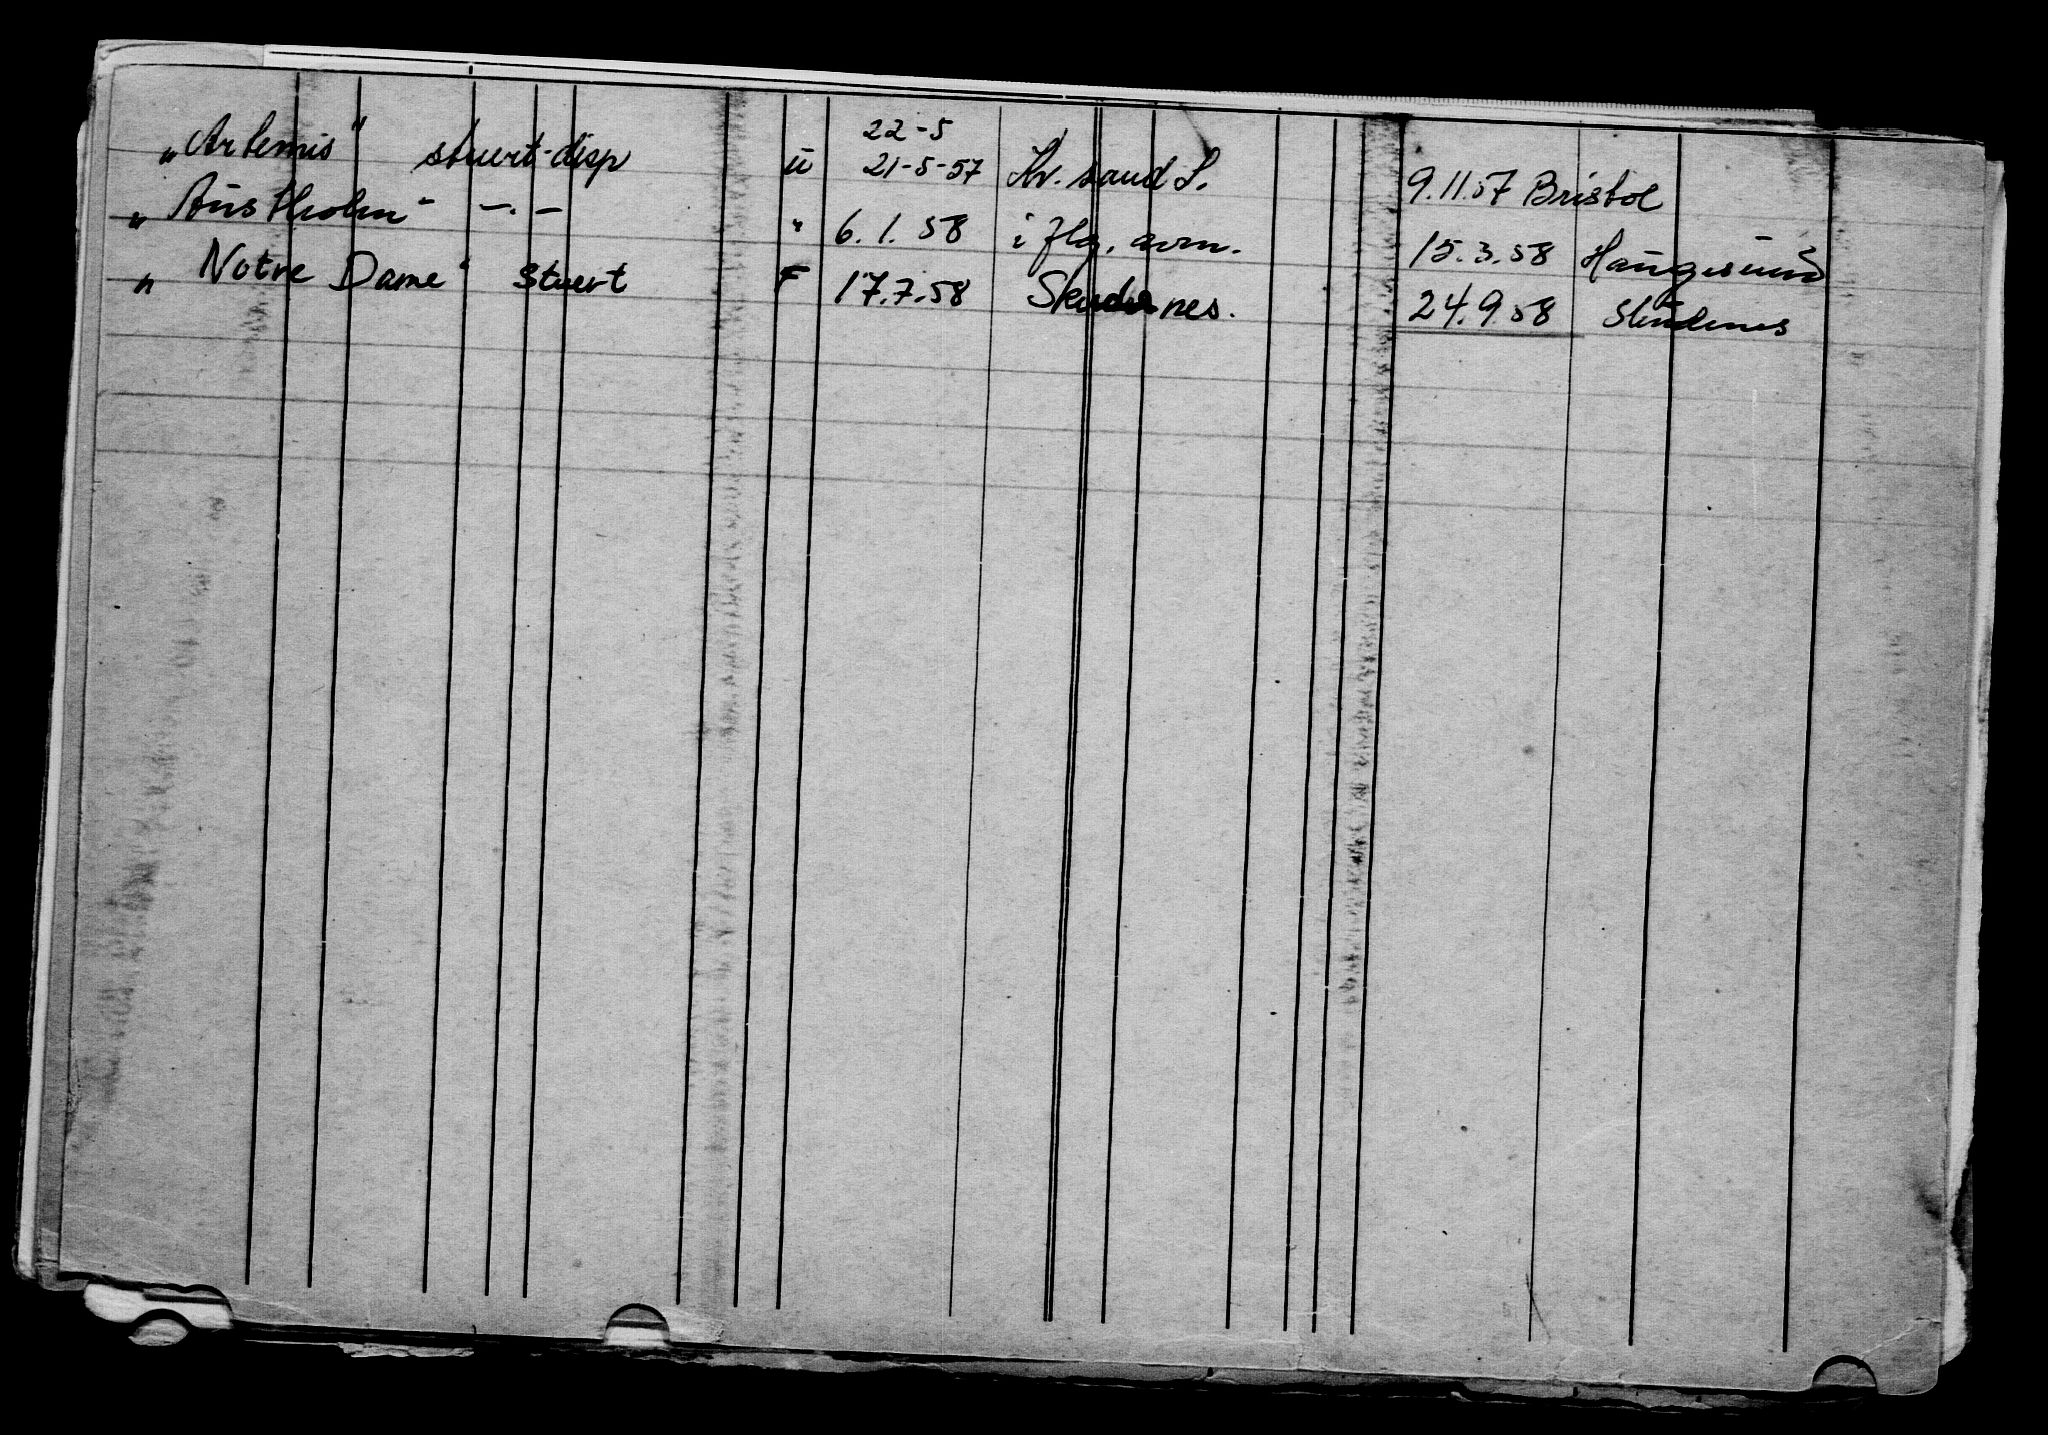 22-5
„Artemis" stuert-disp u 21-5-57 Kr. sand S. 9.11.57 Bristol
„Austholm" -.- " 6.1.58 i flg. arm. 15.3.58 Haugesund
„Notre Dame" Stuert F 17.7.58 Skudenes. 24.9.58 Skudenes